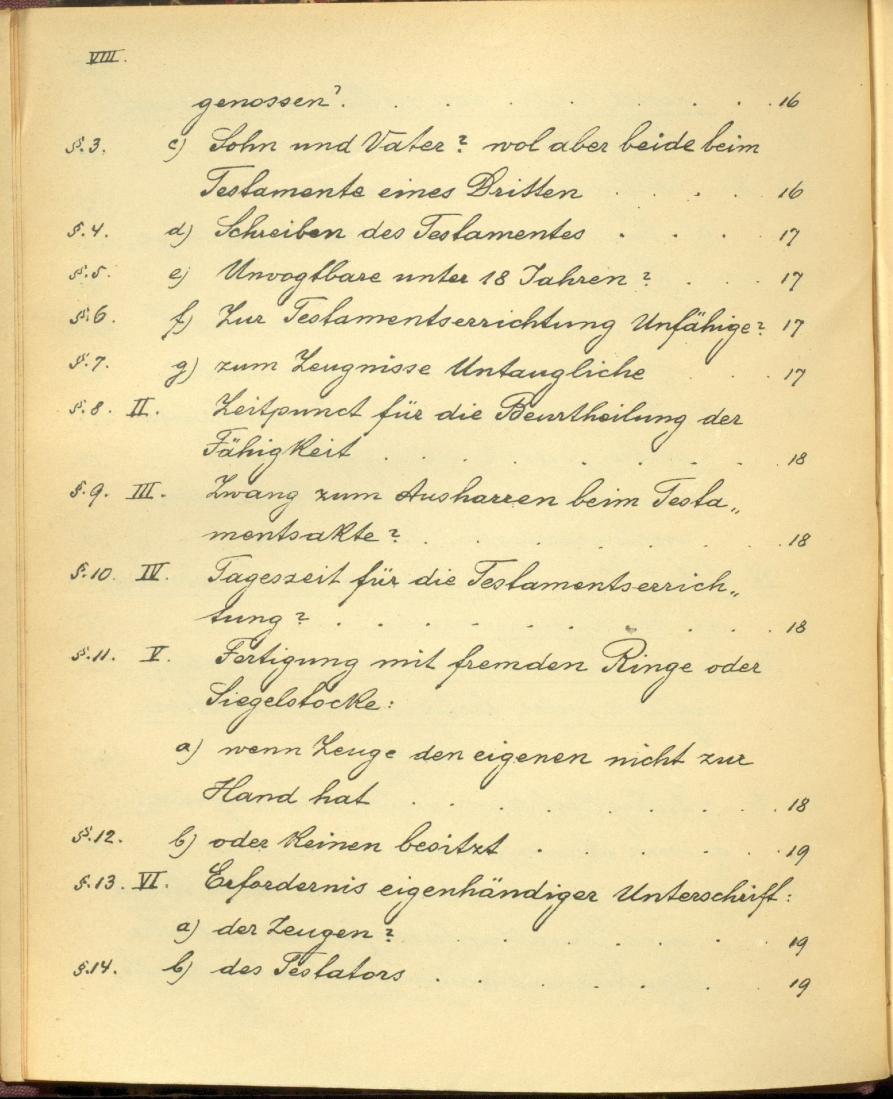 VIII.
genossen? . . . . . . . . 16
§.3. c) Sohn und Vater? wol aber beide beim
Testamente eines Dritten . . . 16
§.4. d) Schreiben des Testamentes . . . 17
§.5. e) Unvogtbare unter 18 Jahren? . . . 17
§.6. f) Zur Testamentserrichtung Unfähige? 17
§.7. g) zum Zeugnisse Untaugliche . . . 17
§.8. II. Zeitpunct für die Beurtheilung der
Fähigkeit . . . . . . . 18
§.9. III. Zwang zum Ausharren beim Testa„
mentsakte? . . . . . . . 18
§.10. IV. Tageszeit für die Testamentserrich„
tung? . . . . . . . . 18
§.11. V. Fertigung mit fremden Ringe oder
Siegelstocke:
a) wenn Zeuge den eigenen nicht zur
Hand hat . . . . . . . 18
§.12. b) oder keinen besitzt . . . . . 19
§.13. VI. Erfordernis eigenhändiger Unterschrift:
a) der Zeugen? . . . . . . 19
§.14. b) des Testators . . . . . . 19